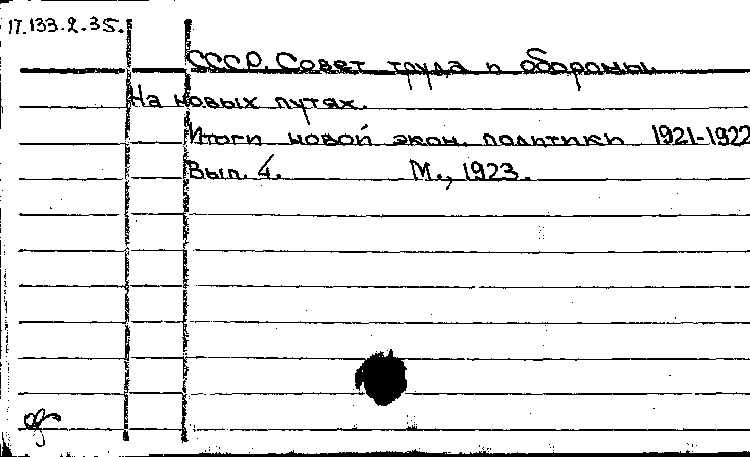 17.133.2.35.
СССР. Совет труда и обороны
На новых путях.
Итоги новой экон. политики 1921-1922
Вып. 4. М., 1923.